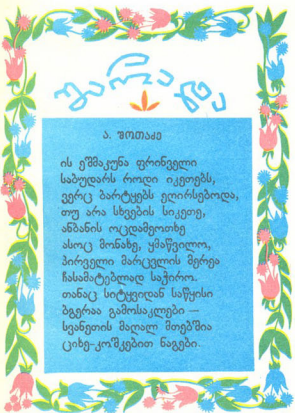 შარადა
ა. შოთაძე
ის ეშმაკუნა ფრინველი
საბუდარს როდი იკეთებს,
ვერც ბარტყებს ეღირსებოდა,
თუ არა სხვების სიკეთე,
ანბანის ოცდამეოთხე
ასოც მონახე, ყმაწვილო,
პირველი მარცვლის მერეა
ჩასამატებლად საჭირო.
თანაც სიტყვიდან საწყისი
ბგერაა გამოსაკლები —
სვანეთის მაღალ მთებშია
ციხე-კოშკებით ნაგები.